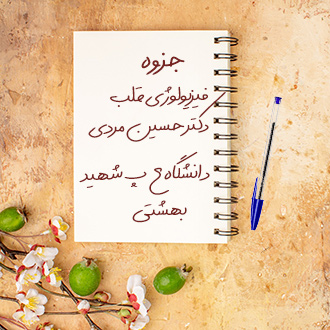 جزوه
فیزیولوژی قلب
دکتر حسین مردی
دانشگاه ع پ شهید
بهشتی